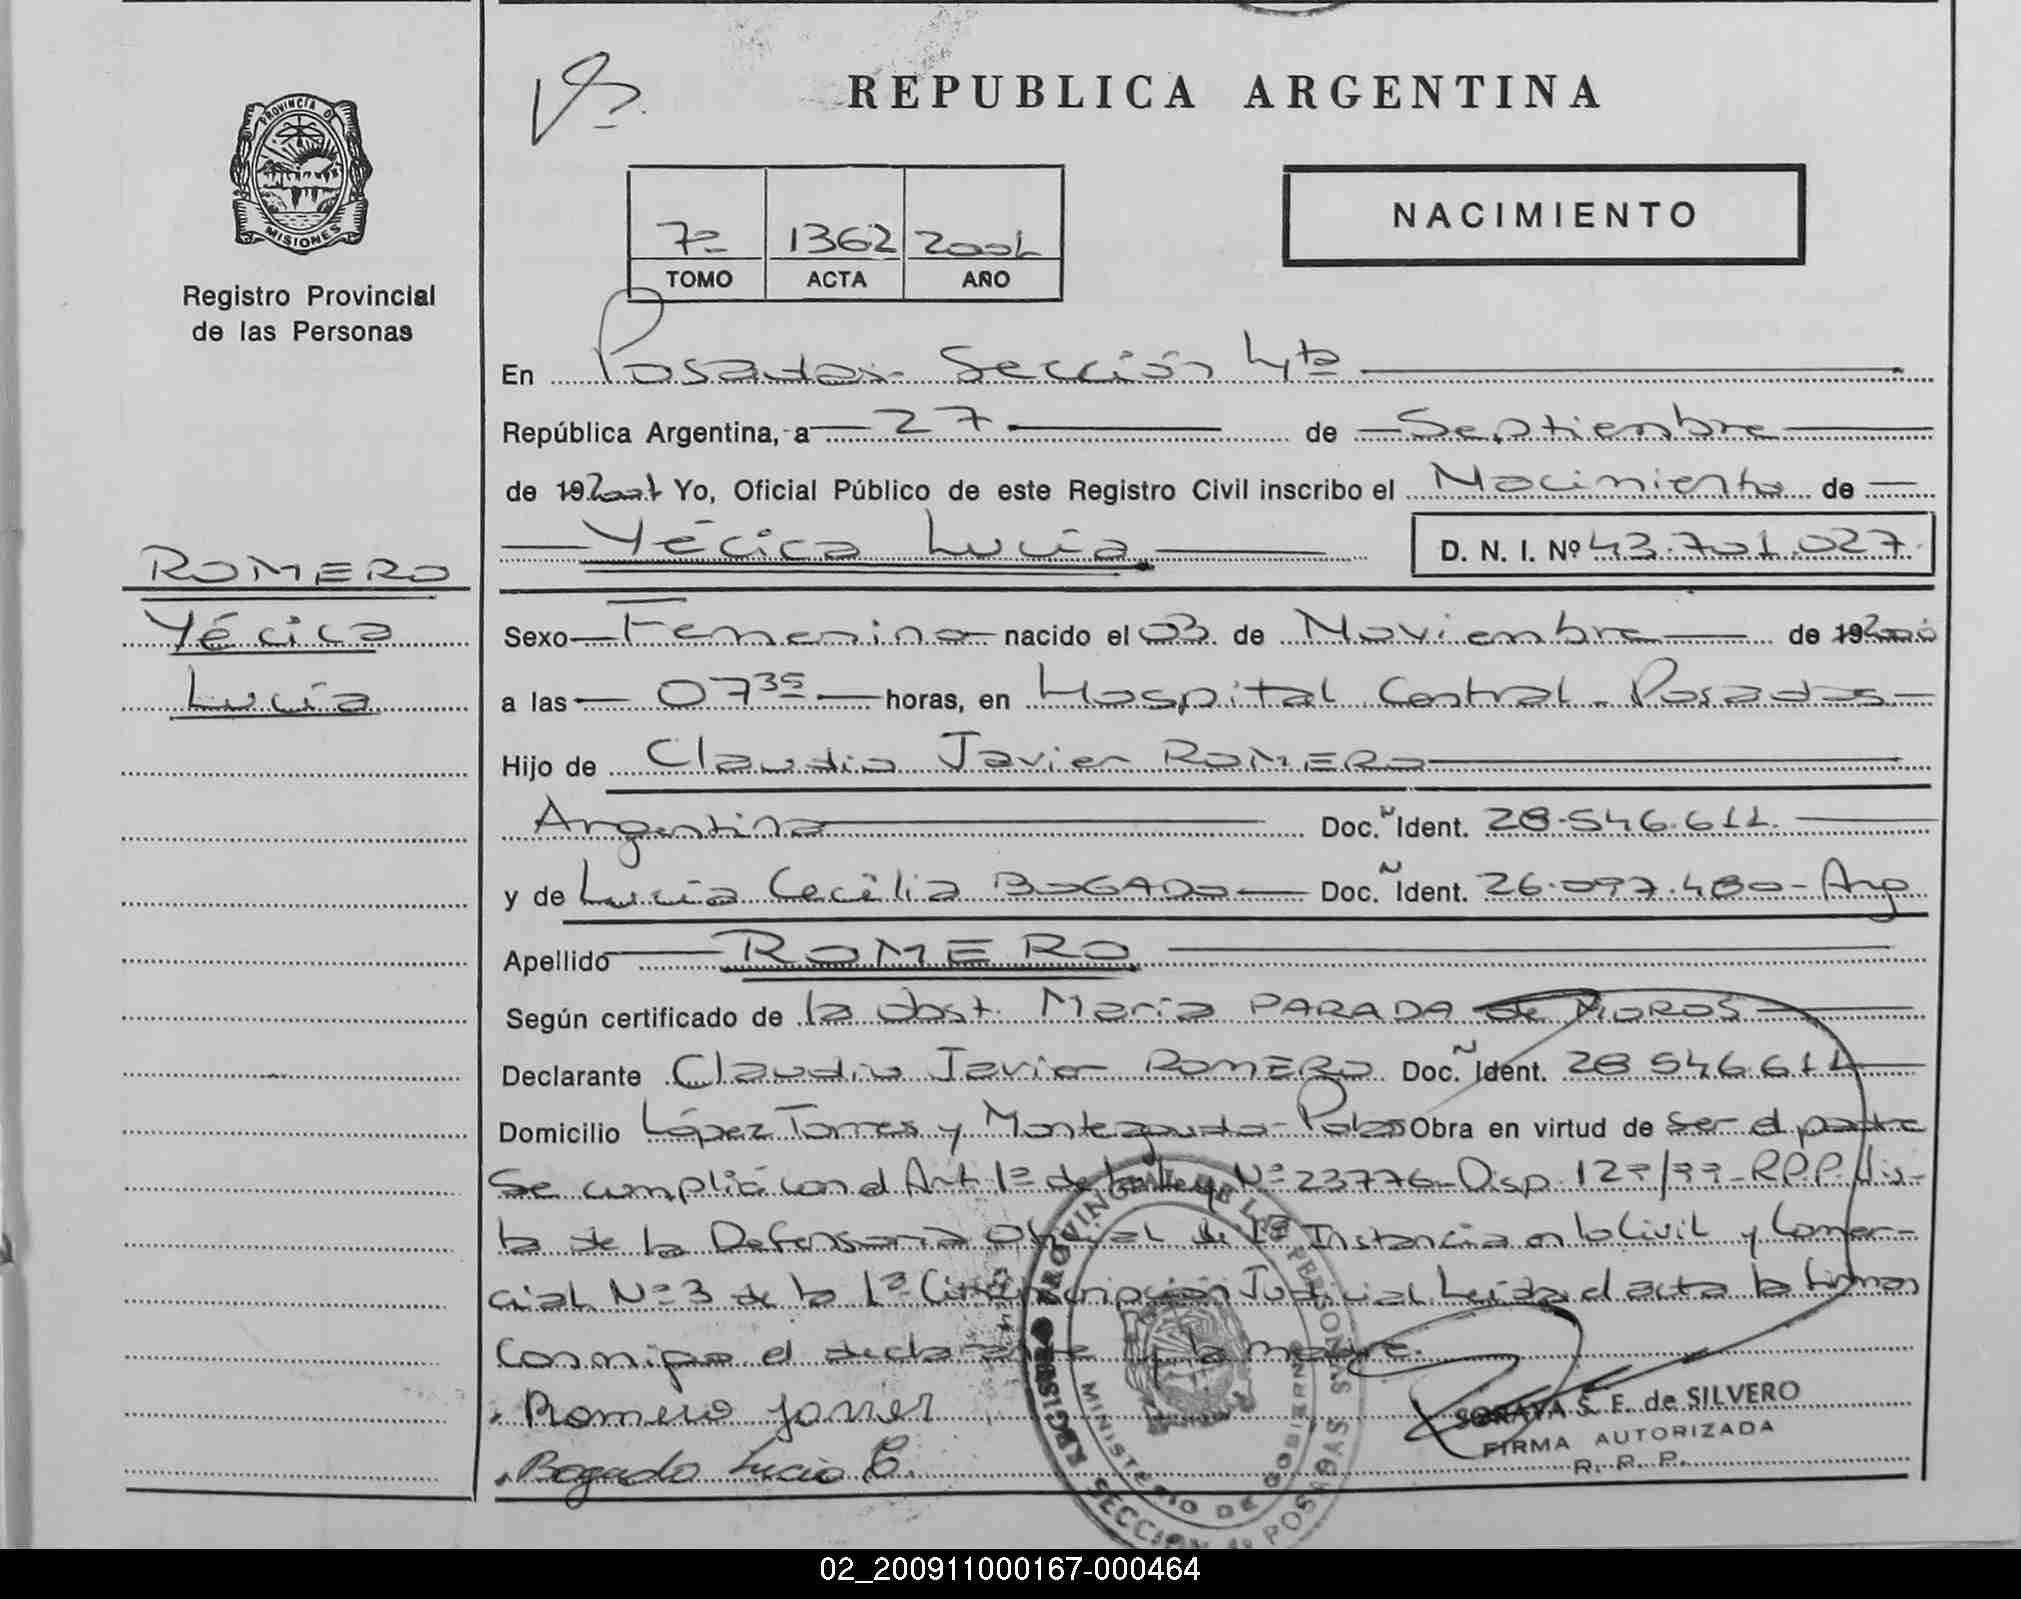 REPUBLICA ARGENTINA
PROVINCIA DE
MISIONES
Registro Provincial
de las Personas
NACIMIENTO
7º 1362 2001
TOMO ACTA AÑO
En Posadas Sección 4ta
República Argentina, a 27 de Septiembre
de 19 2001 Yo, Oficial Público de este Registro Civil inscribo el Nacimiento de
Yécica Lucía D. N. I. Nº 43.701.027
ROMERO
Yécica
Lucía
Sexo Femenino nacido el 03 de Noviembre de 19 2000
a las 07 35 horas, en Hospital Central - Posadas
Hijo de Claudio Javier ROMERO
Argentina Doc. N Ident. 28.546.611.
y de Lucía Cecilia BOGADO Doc. N Ident. 26.097.480 - Arg
Apellido ROMERO
Según certificado de la obst. María PARADA de MOROS
Declarante Claudio Javier ROMERO Doc. N Ident. 28 546.611
Domicilio López Torres y Monteagudo - Pdas Obra en virtud de ser el padre
Se cumplió con el Art. 1º de la ley Nº 23776 - Disp. R.P.P. Vis-
ta de la Defensoría Oficial de 1ª Instancia en lo Civil y Comer-
cial Nº 3 de la 1ª Circunscripción Judicial Leída el acta la firman
Conmigo el declarante y la madre.
Romero Javier
Bogado Lucia C.
SORAYA S. E. de SILVERO
FIRMA AUTORIZADA
R. P. P.
REGISTRO PROVINCIAL DE LAS PERSONAS
MINISTERIO DE GOBIERNO
SECCION 4ª POSADAS
02_200911000167-000464